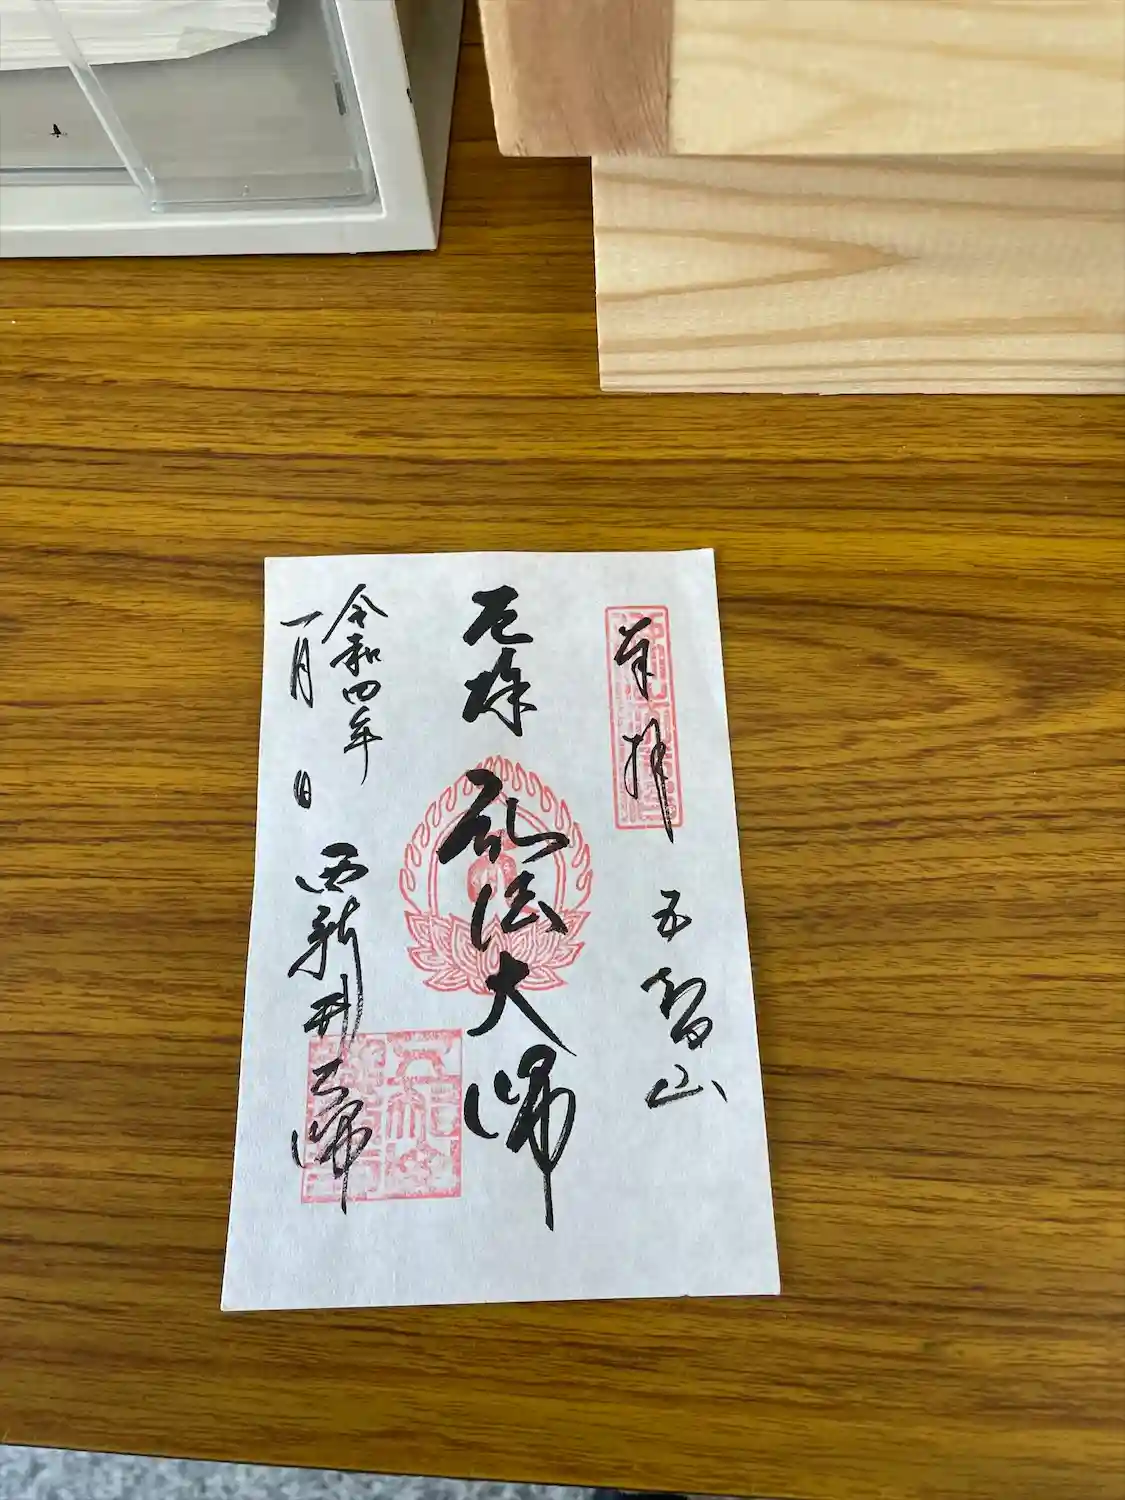 奉拝 五智山
厄除 弘法大師
令和四年
一月 日
西新井大師